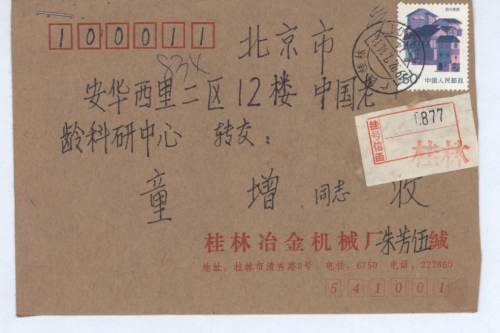 100011
834
北京市
安华西里二区12楼 中国老
龄科研中心 转交：
童增 同志 收
中国人民邮政
挂号信函
0877
桂林
桂林冶金机械厂 朱芳伍 缄
地址：桂林市清秀路8号 电挂：6750 电话：222860
541001